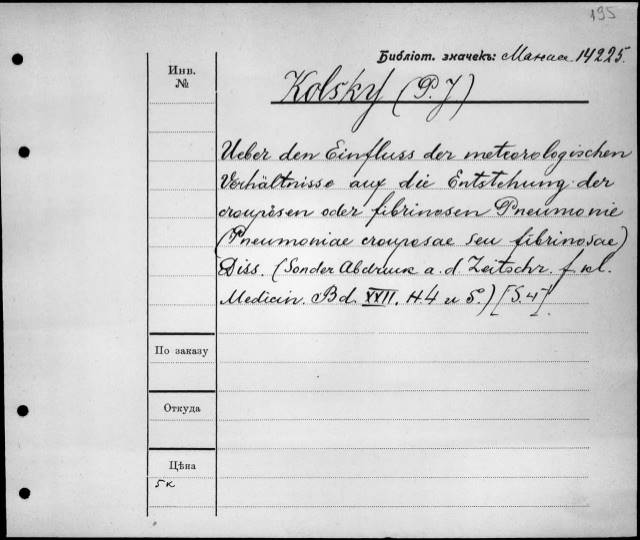 195
Библіот. значекъ: Манаа 14225.
Инв.
№
Kolsky (P. J.)
Ueber den Einfluss der meteorologischen
Verhältnisse auf die Entstehung der
croupösen oder fibrinosen Pneumonie
(Pneumoniae crouposae seu fibrinosae)
Diss. (Sonder Abdruck a. d. Zeitschr. f. kl.
Medicin. Bd. XVII. H. 4 u 5.) [S. 4]
По заказу
Откуда
Цѣна
5 к